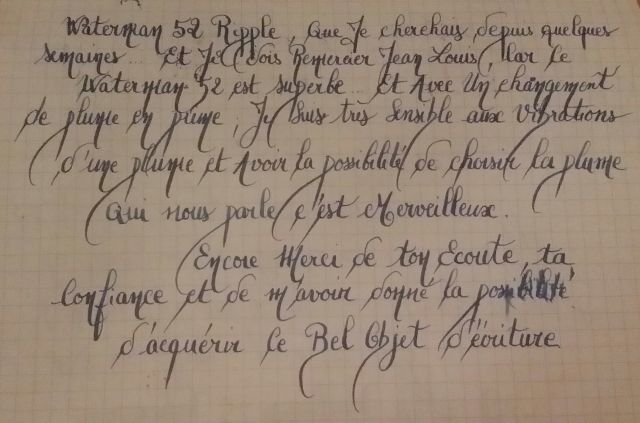 Waterman 52 Ripple, Que Je cherchais depuis quelques
semaines... Et Je dois Remercier Jean Louis, Car Ce
Waterman 52 est superbe... Et Avec Un changement
de plume en prime, Je Suis très Sensible aux Vibrations
d'une plume et Avoir la possibilité de choisir la plume
Qui nous parle c'est Merveilleux.
Encore Merci de ton Ecoute, ta
Confiance et de m'avoir donné la possibilité
d'acquérir Ce Bel Objet d'écriture